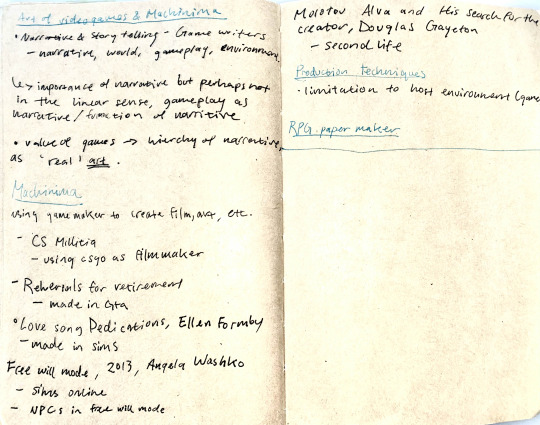 Art of videogames & Machinima
• Narrative & Story telling - Game writers
- narrative, world, gameplay, environment
↳ importance of narrative but perhaps not
in the linear sense, gameplay as
narrative / function of narritive
• value of games → hierchy of narrative,
as 'real' art.
Machinima
using gamemaker to create film, art, etc.
- CS Millitia
- using csgo as filmmaker
- Rehersals for retirement
- made in Gta
• Love song Dedications, Ellen Formby
- made in sims
Free will mode, 2013, Angela Washko
- sims online
- NPCs in free will mode
Molotov Alva and His search for the
creator, Douglas Gayeton
- second life
Production Techniques
• limitation to host environment (game
RPG. paper maker